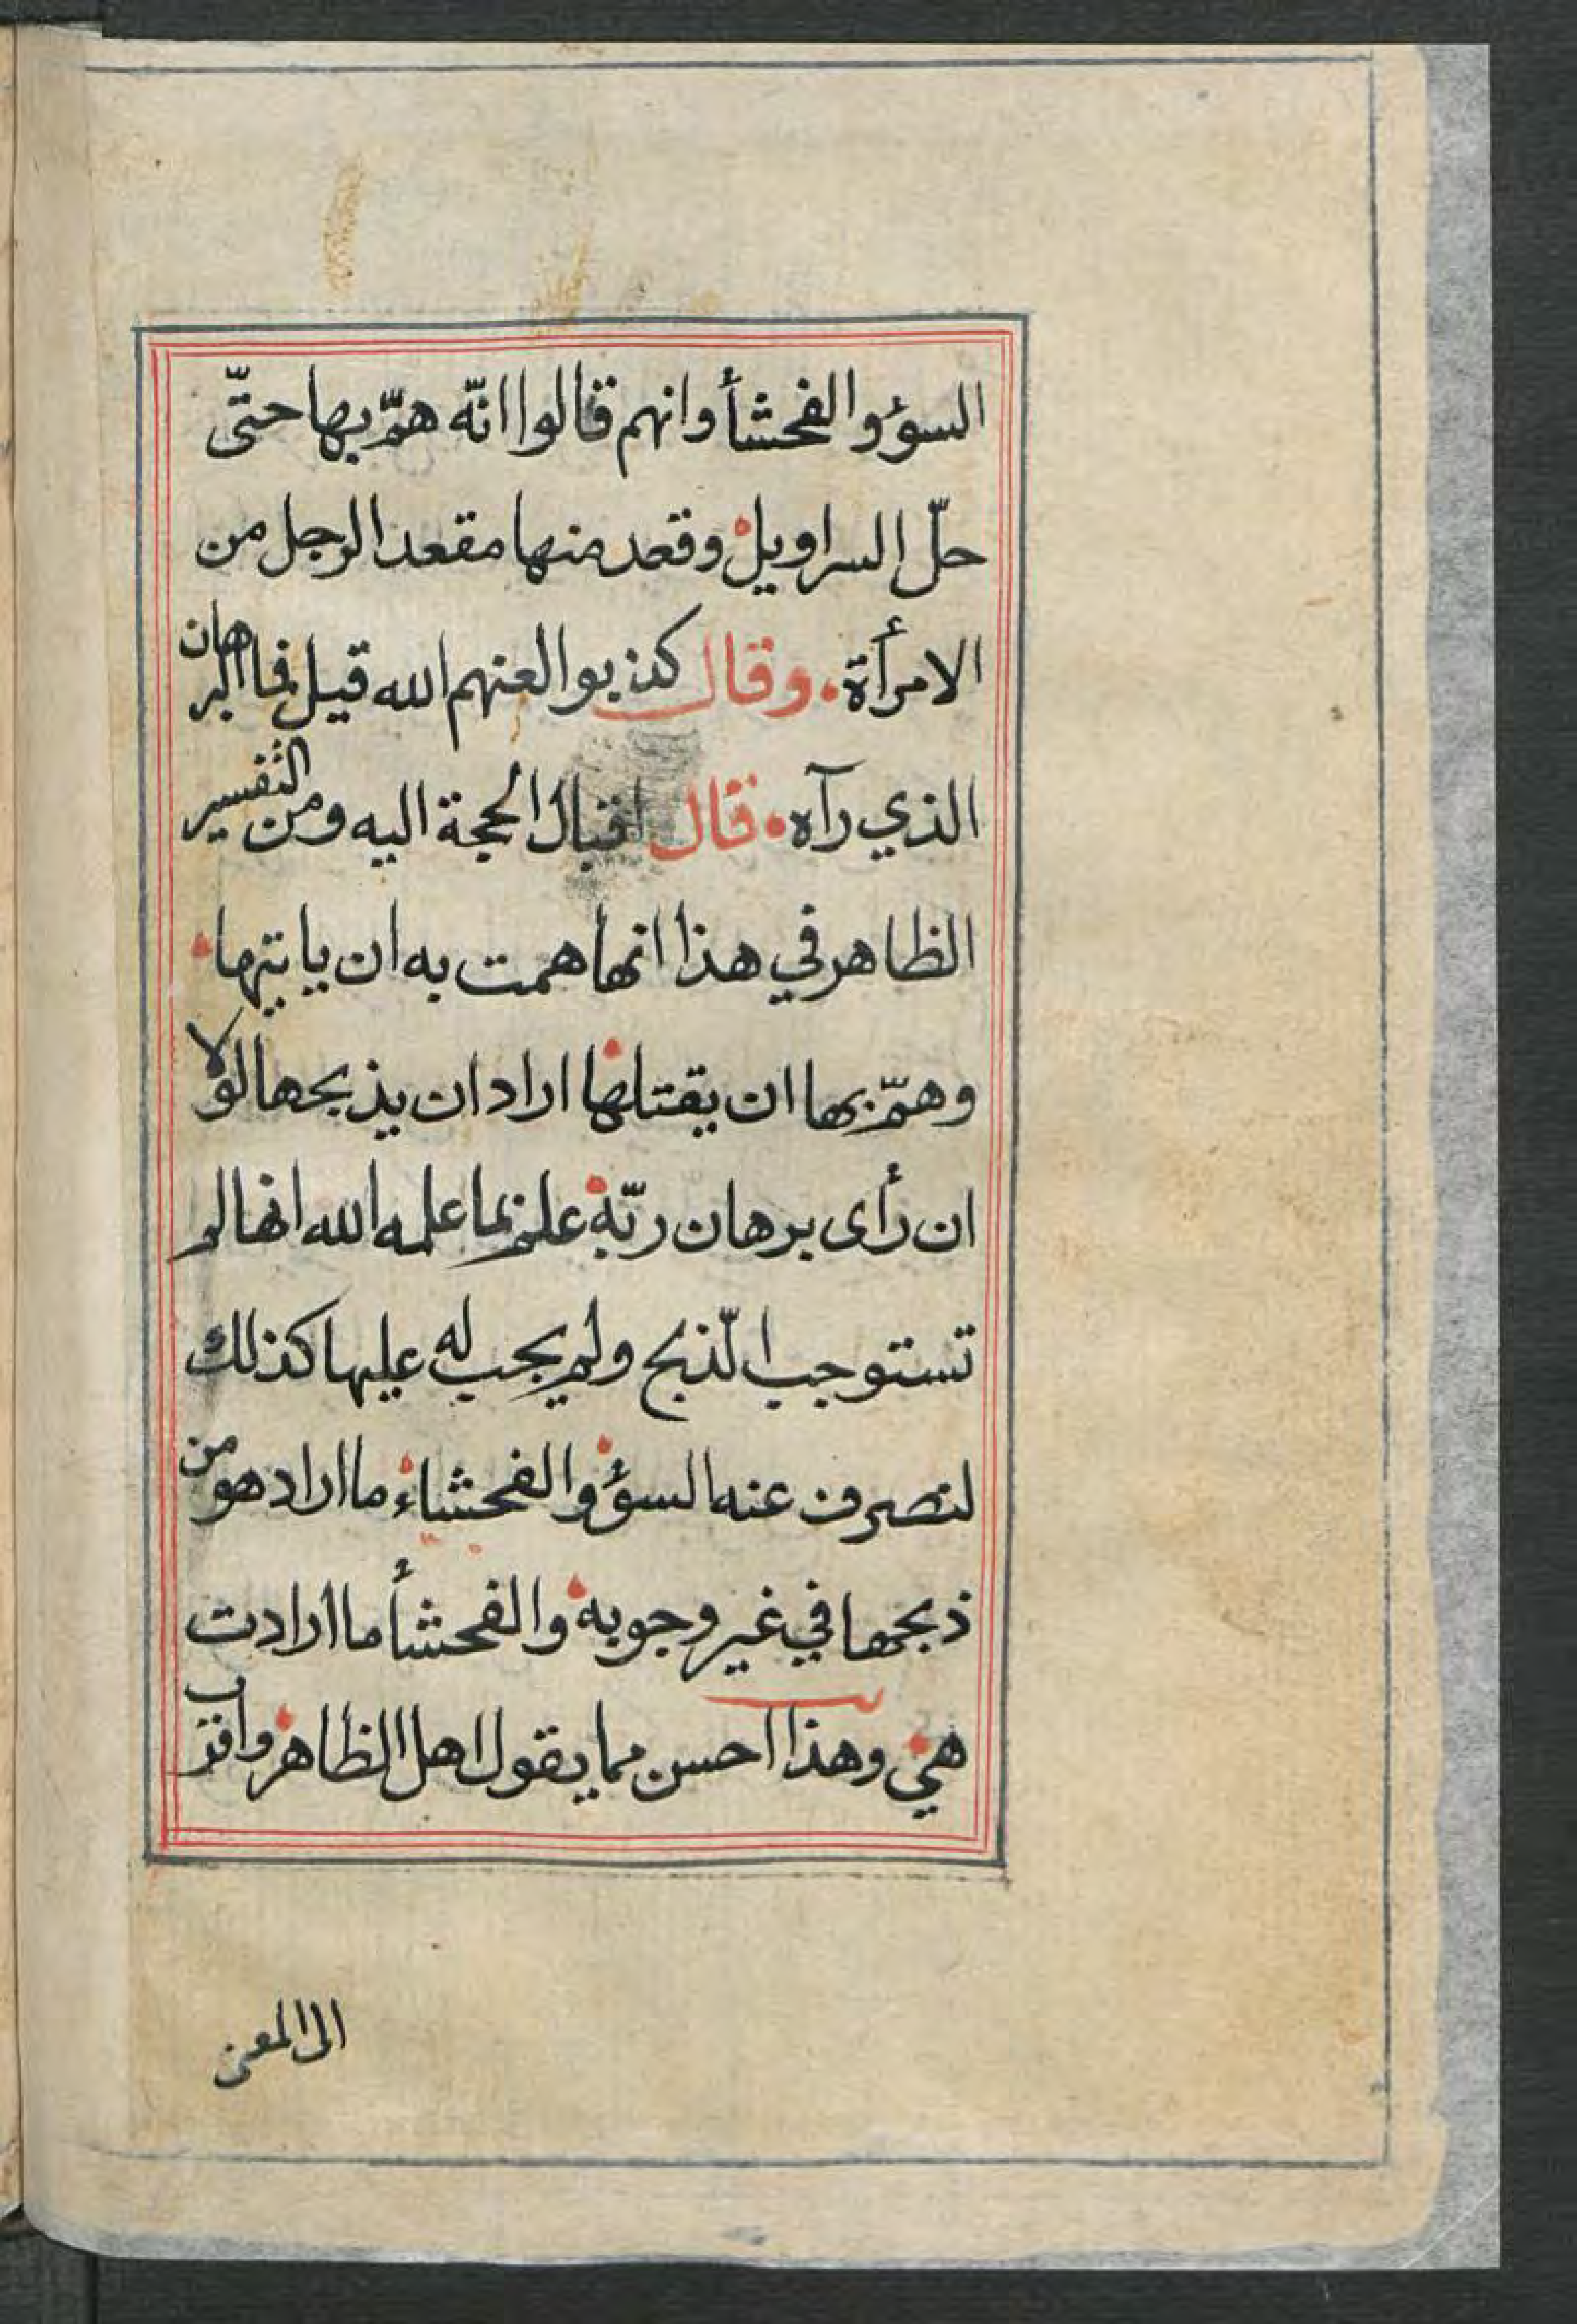 السوؤ والفحشأ وانهم قالوا انّه همّ بها حتّى
حلّ السراويل وقعد منها مقعد الرجل من
الامرأة. وقال كذبوا لعنهم الله قيل فما البرهان
الذي رآه. قال اقبال الحجة اليه ومن التفسير
الظاهر في هذا انها همت به ان ياتيها
وهمّ بها ان يقتلها اراد ان يذبحها لولا
ان رأى برهان ربّه علم بما علمه الله انها لم
تستوجب الذّبح ولم يجب له عليها كذلك
لنصرف عنه السوؤ والفحشاء ما اراد هو من
ذبحها في غير وجوبه والفحشأ ما ارادت
هي وهذا احسن مما يقول اهل الظاهر واقرب
الى المعنى